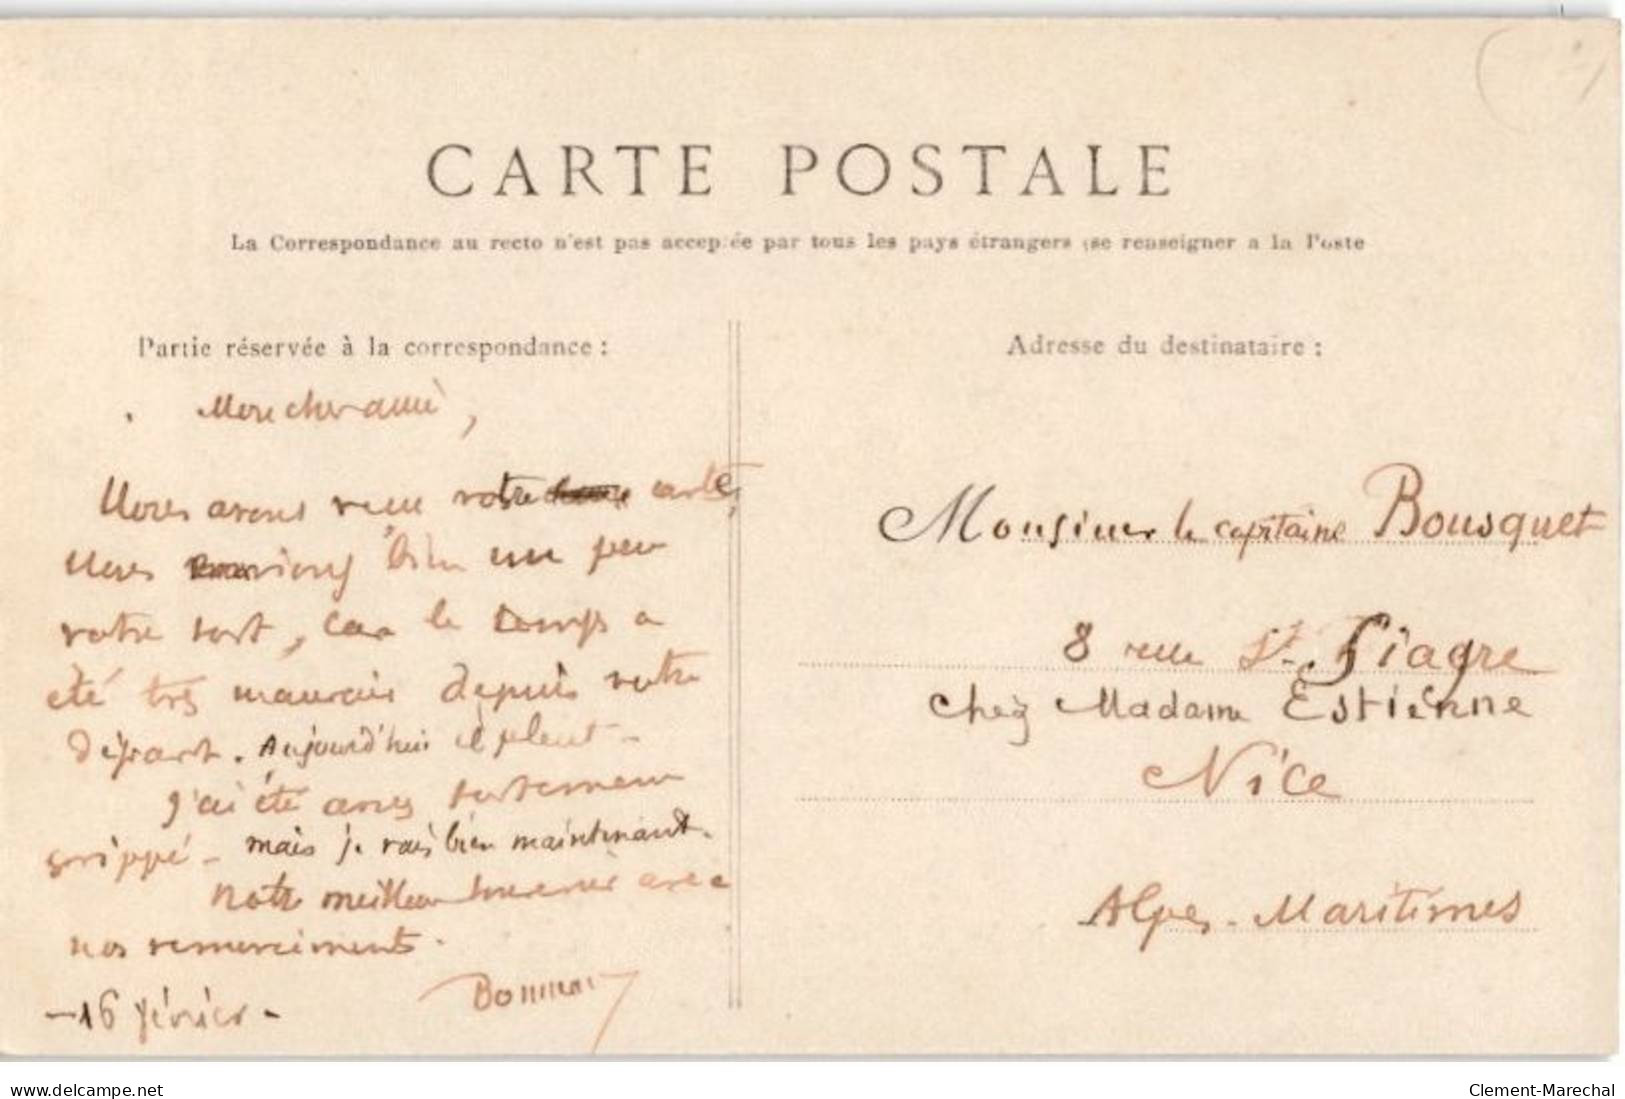 CARTE POSTALE
La Correspondance au recto n'est pas acceptée par tous les pays étrangers (se renseigner a la Poste
Partie réservée à la correspondance :
Mon cher ami,
Nous avons reçu votre carte,
Nous envions bien un peu
votre sort, car le temps a
été très mauvais depuis votre
départ. Aujourd'hui il pleut -
J'ai été assez fortement
grippé - mais je vais bien maintenant.
Notre meilleur souvenir avec
nos remerciements.
- 16 février -
Adresse du destinataire :
Monsieur le capitaine Bousquet
8 rue St. Siagre
chez Madame Estienne
Nice
Alpes-Maritimes
www.delcampe.net
Clement-Marechal